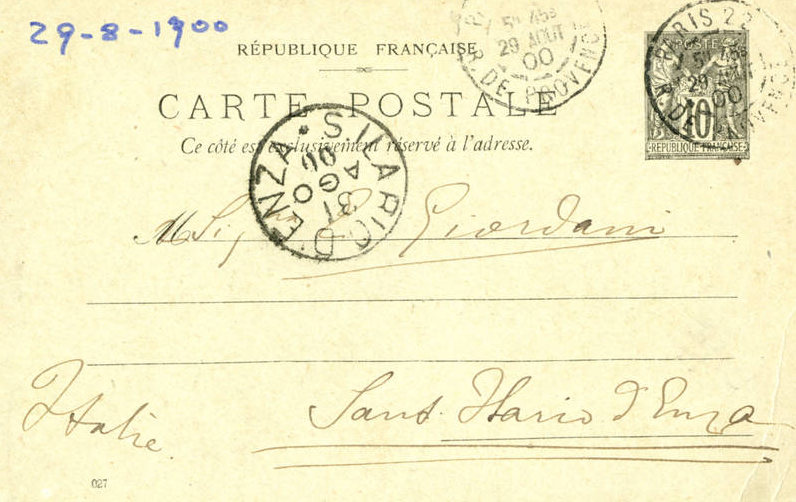 29-8-1900
RÉPUBLIQUE FRANÇAISE
CARTE POSTALE
Ce côté est exclusivement réservé à l'adresse.
5E 45S
29 AOUT
00
R. DE PROVENCE
POSTES
10
REPUBLIQUE FRANÇAISE
PARIS 22
5E 45S
29 AOUT
00
R. DE PROVENCE
S. ILARIO D'ENZA
31
AGO
00
Giordani
Italie.
Sant. Ilario d'Enza
027